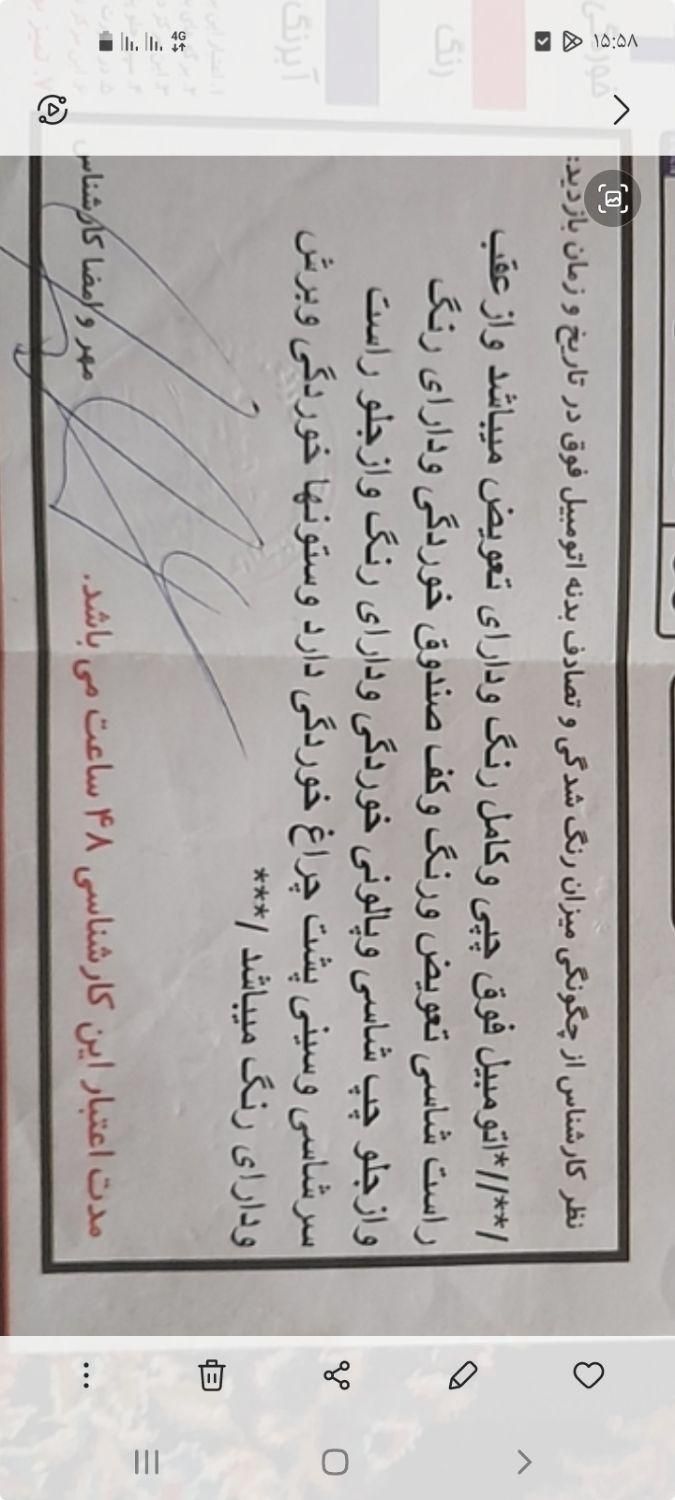 ۱۵:۵۸
4G
رنگ
آبرنگ
نظر کارشناس از چگونگی میزان رنگ شدگی و تصادف بدنه اتومبیل فوق در تاریخ و زمان بازدید:
/**//*اتومبیل فوق چپی وکامل رنگ ودارای تعویض میباشد واز عقب
راست شاسی تعویض ورنگ وکف صندوق خوردگی ودارای رنگ
وازجلو چپ شاسی وپالونی خوردگی ودارای رنگ وازجلو راست
سرشاسی وسینی پشت چراغ خوردگی دارد وستونها خوردگی وبرش
ودارای رنگ میباشد /***
مهر و امضا کارشناس
مدت اعتبار این کارشناسی ۴۸ ساعت می باشد.